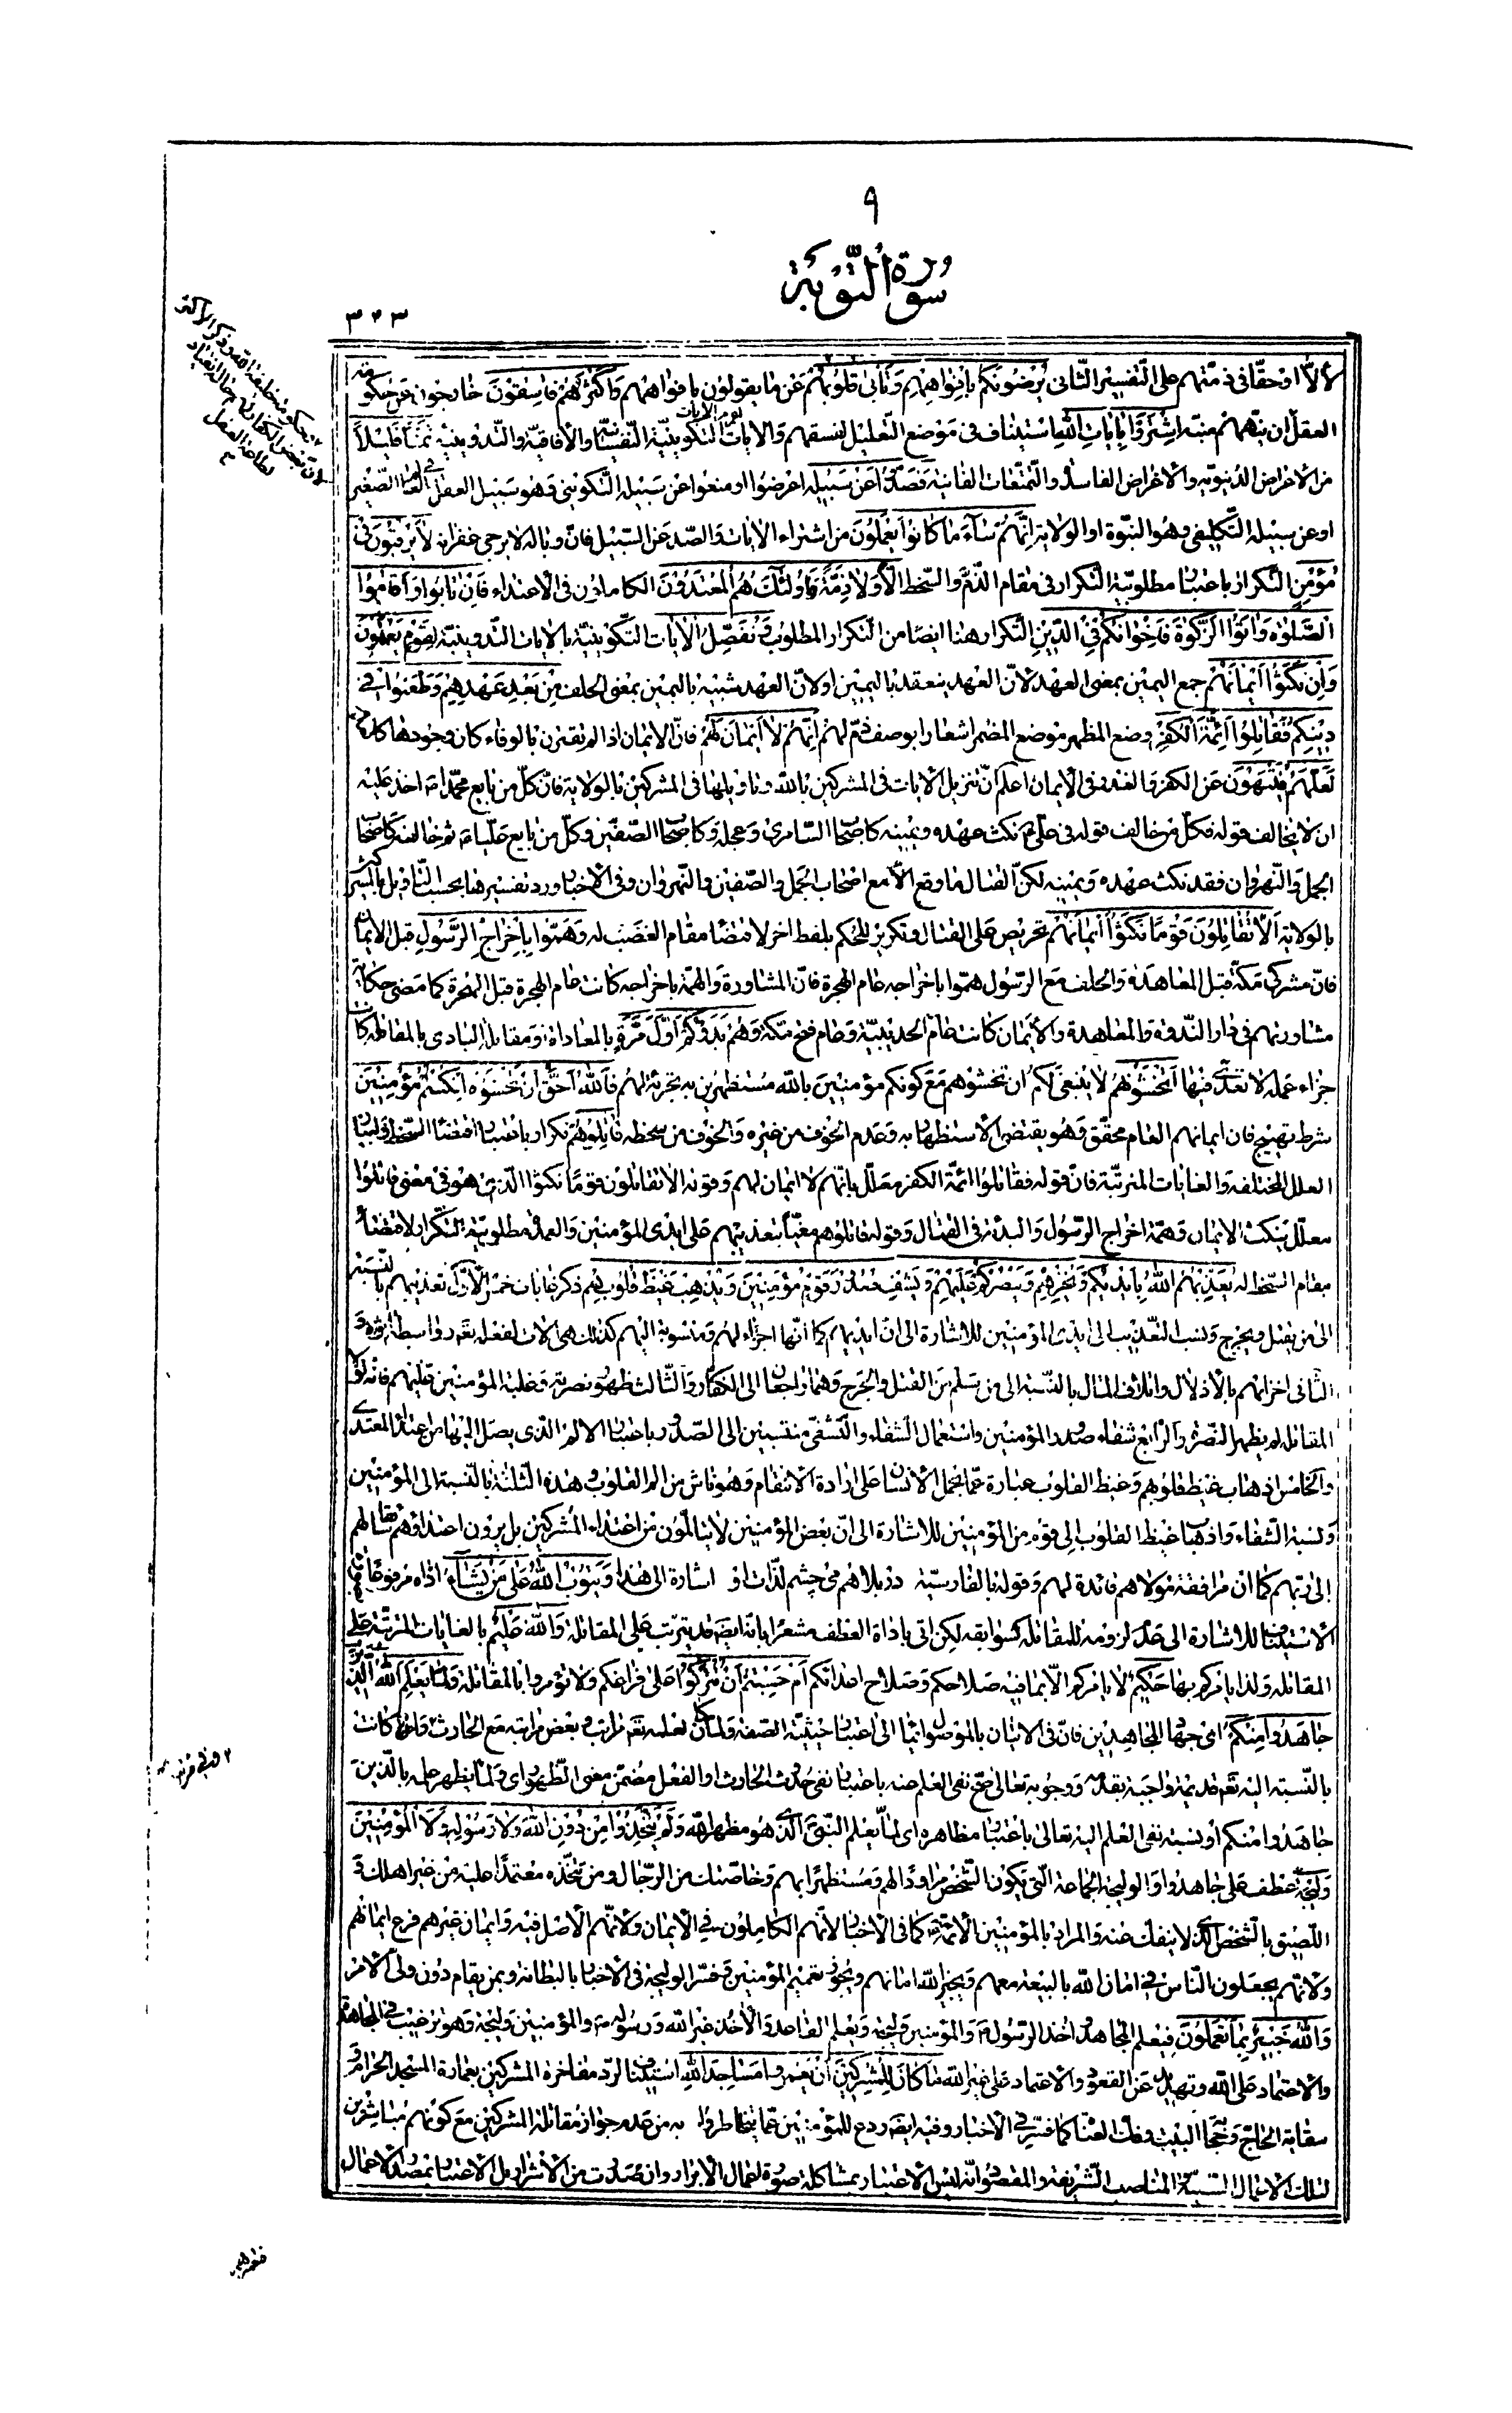 ٩
سورة التوبة
٣٠٣
لا لأ او حقّا فى ذمّتهم على التّفسير الثّانى يُرْضُونَكُمْ بِأَفْواهِهِمْ وَتَأْبى قُلُوبُهُمْ عن ما يقولون بافواههم وَأَكْثَرُهُمْ فاسِقُونَ خارجون عن حكومة
العقل ان نبّههم منبّه اشْتَرَوْا بِآياتِ اللهِ استيناف فى موضع التّعليل لفسقهم والآيات التّكوينيّة النّفسيّة والآفاقيّة والتّدوينيّة ثَمَناً قَلِيلاً
من الاعراض الدّنيويّه والاغراض الفاسدة والتّمتّعات الفانية فَصَدُّوا عَنْ سَبِيلِهِ اعرضوا او منعوا عن سبيله التّكوينىّ وهو سبيل العقل فى العالم الصّغير
او عن سبيله التّكليفى وهو النبّوة او الولاية إِنَّهُمْ ساءَ ما كانُوا يَعْمَلُونَ من اشتراء الآيات والصّد عن السّبيل فانّ وباله لا يرجى غفرانه لا يَرْقُبُونَ فِي
مُؤْمِنٍ التّكرار باعتبار مطلوبيّة التّكرار فى مقام الذّمّ والسّخط إِلًّا وَلا ذِمَّةً وَأُولئِكَ هُمُ الْمُعْتَدُونَ الكاملون فى الاعتداء فَإِنْ تابُوا وَأَقامُوا
الصَّلوةَ وَآتَوُا الزَّكوةَ فَإِخْوانُكُمْ فِي الدِّينِ التّكرار هنا ايضا من التّكرار المطلوب وَنُفَصِّلُ الْآياتِ التّكوينيّة بالآيات التّدوينيّة لِقَوْمٍ يَعْلَمُونَ
وَإِنْ نَكَثُوا أَيْمانَهُمْ جمع اليمين بمعنى العهد لانّ العهد ينعقد باليمين او لانّ العهد شبيه باليمين بمعنى الحلف مِنْ بَعْدِ عَهْدِهِمْ وَطَعَنُوا فِي
دِينِكُمْ فَقاتِلُوا أَئِمَّةَ الْكُفْرِ وضع المظهر موضع المضمر اشعارا بوصف ذمّ لهم إِنَّهُمْ لا أَيْمانَ لَهُمْ فانّ الايمان اذا لم يقترن بالوفاء كان وجودها كالعدم
لَعَلَّهُمْ يَنْتَهُونَ عن الكفر والغدر فى الايمان اعلم انّ تنزيل الآيات فى المشركين بالله وتاويلها فى المشركين بالولاية فانّ كلّ من بايع محمّدا ص اخذ عليه
ان لا يخالف قوله فكلّ من خالف قوله فى علىّ ع نكث عهده ويمينه كاصحاب السّامرىّ وعجله وكاصحاب الصّفّين وكلّ من بايع عليّا ع ثم خالفه كاصحاب
الجمل والنّهروان فقد نكث عهده ويمينه لكنّ القتال ما وقع الّا مع اصحاب الجمل والصّفّين والنّهروان وفى الاخبار ورد تفسيرها بحسب التّاويل بالمشركين
بالولاية أَلا تُقاتِلُونَ قَوْماً نَكَثُوا أَيْمانَهُمْ تحريص على القتال وتكرير للحكم بلفظ آخر لاقتضاء مقام الغضب له وَهَمُّوا بِإِخْراجِ الرَّسُولِ قبل الايمان
فانّ مشركى مكّة قبل المعاهدة والحلف مع الرّسول همّوا باخراجه عام الهجرة فانّ المشاورة والهمّة باخراجه كانت عام الهجرة قبل الهجرة كما مضى حكاية
مشاورتهم فى دار النّدوة والمعاهدة والايمان كانت عام الحديبيّة وعام فتح مكّة وَهُمْ بَدَؤُكُمْ أَوَّلَ مَرَّةٍ بالمعاداة ومقابلة البادى بالمقاتلة كان
جزاء عمله لا تعدّى فيها أَتَخْشَوْنَهُمْ لا ينبغى لكم ان تخشوهم مع كونكم مؤمنين بالله مستظهرين به تجرئة لهم فَاللهُ أَحَقُّ أَنْ تَخْشَوْهُ إِنْ كُنْتُمْ مُؤْمِنِينَ
شرط تهييج فان ايمانهم العام محقّق وهو يقتضى الاستظهار به وعدم الخوف من غيره والخوف من سخطه قاتِلُوهُمْ تكرار باعتبار اقتضاء السّخط ولبيان
العلل المختلفه والغايات المترتّبة فانّ قوله فقاتلوا ائمّة الكفر معلّل بانّهم لا ايمان لهم وقوله الا تقاتلون قوما نكثوا الّذى هو فى معنى قاتلوا
معلّل بنكث الايمان وهمّة اخراج الرّسول والبدئة فى القتال وقوله قاتلوهم مغيّا بتعذيبهم على ايدى المؤمنين والعمدة مطلوبيّة التّكرار لاقتضاء
مقام السّخط له يُعَذِّبْهُمُ اللهُ بِأَيْدِيكُمْ وَيُخْزِهِمْ وَيَنْصُرْكُمْ عَلَيْهِمْ وَيَشْفِ صُدُورَ قَوْمٍ مُؤْمِنِينَ وَيُذْهِبْ غَيْظَ قُلُوبِهِمْ ذكر غايات خمس الاوّل تعذيبهم بالنّسبة
الى من يقتل ويجرح ونسب التّعذيب الى ايدى المؤمنين للاشارة الى انّ ايديهم كما انّها اجزاء لهم ومنسوبة اليهم كذلك هى آلات لفعله تعم وواسطة
الثّانى اخزائهم بالاذلال واتلاف المال بالنّسبة الى من يسلم من القتل والجرح وهما راجعان الى الكفّار والثّالث ظهور نصرته وغلبة المؤمنين عليهم فانّه لولا
المقاتلة لم يظهر النّصرة والرّابع شفاء صدور المؤمنين واستعمال الشّفاء والتّشفّى منتسبين الى الصّدور باعتبار الالم الّذى يصل اليها من اعتداء المعتدى
والخامس اذهاب غيظ قلوبهم وغيظ القلوب عبارة عمّا يحمل الانسان على ارادة الانتقام وهو ناش من الم القلوب وهذه الثّلثة بالنّسبة الى المؤمنين
ونسبة الشّفاء واذهاب غيظ القلوب الى قوم من المؤمنين للاشارة الى انّ بعض المؤمنين لا يتألّمون من اعتداء المشركين بل يرون اعتداءهم
الى ربّهم كما ان مرافقة مولاهم فائدة لهم وقوله بالفارسيّة در بلا هم مى چشم لذّات او اشارة الى هذا وَيَتُوبُ اللهُ عَلى مَنْ يَشاءُ اداه مرفوعا
الاستيناف للاشارة الى عدم لزومه للمقاتلة كسوابقه لكن اتى باداة العطف مشعرا بانّه ايضا قد يترتّب على المقاتلة وَاللهُ عَلِيمٌ بالغايات المترتّبة على
المقاتلة ولذا يأمركم بها حَكِيمٌ لا يأمركم الّا بما فيه صلاحكم وصلاح اعدائكم أَمْ حَسِبْتُمْ أَنْ تُتْرَكُوا على فراغكم ولا تؤمروا بالمقاتلة وَلَمَّا يَعْلَمِ اللهُ الَّذِينَ
جاهَدُوا مِنْكُمْ اى جهاد المجاهدين فانّ فى الاتيان بالموصول ايماء الى اعتبار حيثيّة الصّفة ولمّا كان لعلمه تعم مراتب وبعض مراتبه مع الحادث وانها كانت
بالنّسبة اليه تعم قديمة واجبة بقدمه ووجوبه تعالى صحّ نفى العلم عنه باعتبار نفى حدوث الحادث او الفعل مضمّن معنى الظّهور اى ولمّا يظهر علمه بالّذين
جاهدوا منكم او نسبة نفى العلم اليه تعالى باعتبار مظاهره اى لمّا يعلم النّبىّ الّذى هو مظهر الله وَلَمْ يَتَّخِذُوا مِنْ دُونِ اللهِ وَلا رَسُولِهِ وَلَا الْمُؤْمِنِينَ
وَلِيجَةً عطف على جاهدوا والوليجة الجماعة الّتى يكون الشّخص مراودا لهم ومستظهرا بهم وخاصّتك من الرّجال ومن تتّخذه معتمدا عليه من غير اهلك و
اللّصيق بالشّخص الّذى لا ينفكّ عنه والمراد بالمؤمنين الائمّة كما فى الاخبار لانّهم الكاملون فى الايمان ولانّهم الاصل فيه وايمان غيرهم فرع ايمانهم
ولانّهم يجعلون النّاس فى امان الله بالبيعة معهم ويجيز الله امانهم ويجوز تعميم المؤمنين وفسّر الوليجة فى الاخبار بالبطانة وبمن يقام دون ولىّ الامر
وَاللهُ خَبِيرٌ بِما تَعْمَلُونَ فيعلم المجاهد واخذ الرّسول ص والمؤمنين وليجة ويعلم القاعد والآخذ غير الله ورسوله ص والمؤمنين وليجة وهو ترغيب فى المجاهدة
والاعتماد على الله وتهديد عن القعود والاعتماد على غير الله ما كانَ لِلْمُشْرِكِينَ أَنْ يَعْمُرُوا مَساجِدَ اللهِ استيناف لردّ مفاخرة المشركين بعمارة المسجد الحرام و
سقاية الحاجّ وحجابة البيت وفكّ العناة كما فسّر فى الاخبار وفيه ايضا ردع للمؤمنين عمّا يخاطروا به من عدم جواز مقاتلة المشركين مع كونهم مباشرين
لتلك الاعمال السّنيّة والمناصب الشّريفة والمقصود انّه ليس الاعتبار بمشاكلة صورة اعمال الابرار وان صدرت من الاشرار بل الاعتبار بمصدر الاعمال